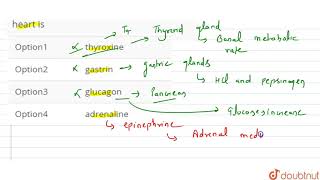 heart is
Option1 thyroxine → T4 → Thyroid gland
↳ Basal metabolic rate
Option2 gastrin → gastric glands
↳ Hcl and pepsinogen
Option3 glucagon → Pancreas
Glucose increase
Option4 adrenaline
↳ epinephrine
↳ Adrenal med
doubtnut